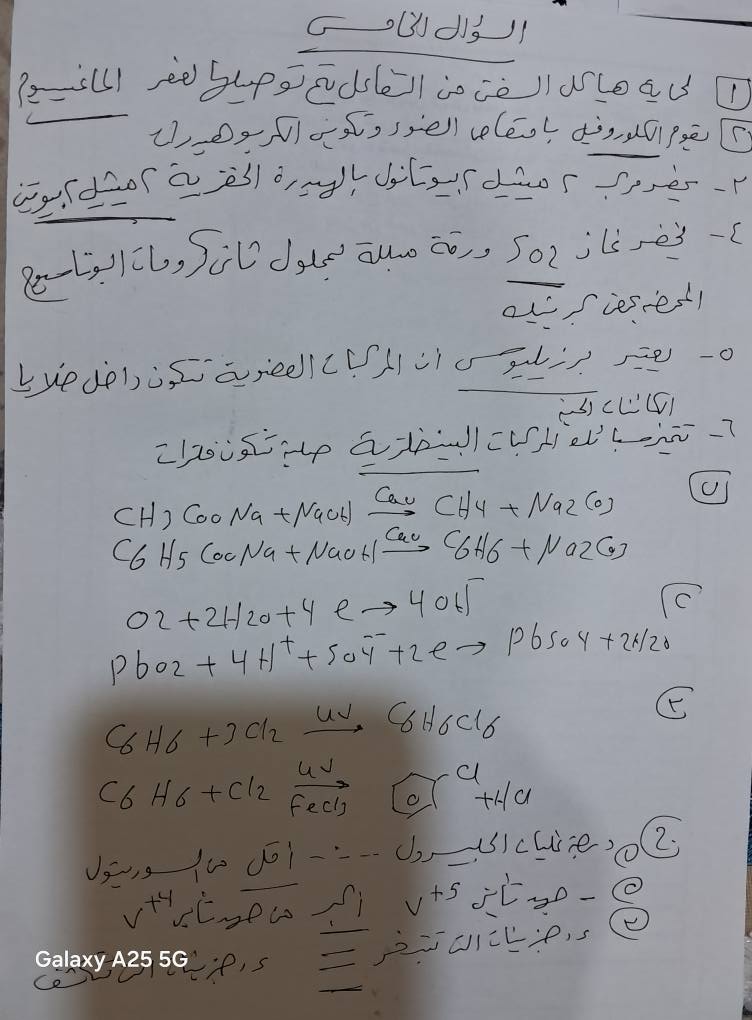 السؤال الخامس
١ لحماية هياكل السفن من التآكل يتم توصيلها بعنصر الماغنسيوم
٢ يقوم الكلوروفيل بامتصاص الضوء وتكوين الكربوهيدرات
٣- يحضر مركب ٢ ميثيل ٢ بيوتانول بالهيدرة الحفزية ٢ ميثيل ٢ بيوتين
٤- يخضر غاز SO2 ورقة مبللة بمحلول ثاني كرومات البوتاسيوم
المحمضة بحمض كبريتيك
٥- يعتبر برزيليوس أن المركبات العضوية تتكون داخل خلايا
الكائنات الحية
٦- تتميز سبائك المركبات البينفلزية صلبة تتكون فلزات
ب
CH3COONa + NaOH CaO → CH4 + Na2CO3
C6H5COONa + NaOH CaO → C6H6 + Na2CO3
O2 + 2H2O + 4e → 4OH-
PbO2 + 4H+ + SO4-- + 2e → PbSO4 + 2H2O
C6H6 + 3Cl2 UV → C6H6Cl6
C6H6 + Cl2 UV FeCl3 → Cl + HCl
درجة غليان الجليسرول --- أقل من السوربيتول
- جهد تأين V+5 أكبر من جهد تأين V+4
جزيئات التي تتبخر = جزيئات التي تتكثف
Galaxy A25 5G